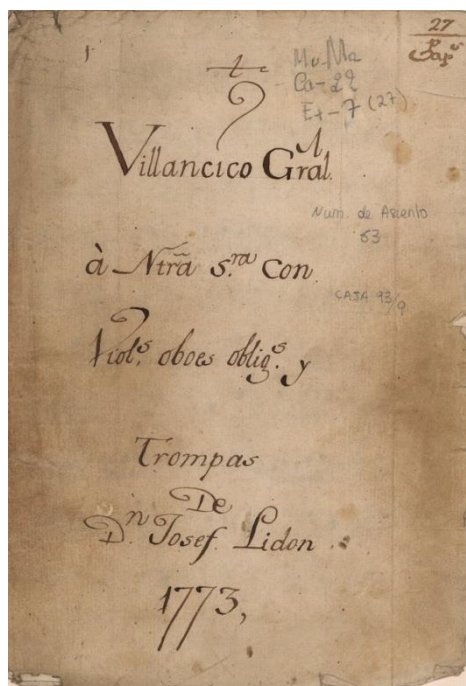 27
Pap.s
1
Mu-Ma
Ca-29
Et-7 (27)
Villancico Gral.
Num. de Asiento
63
à Ntrã s.ra con
CAJA 93/9
Viol.s oboes oblig.s y
Trompas
De
D.n Josef Lidon
1773,